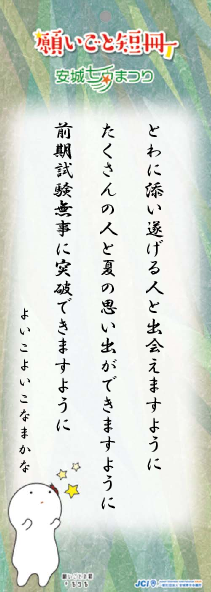 願いごと短冊
安城七夕まつり
とわに添い遂げる人と出会えますように
たくさんの人と夏の思い出ができますように
前期試験無事に突破できますように
よいこよいこなまかな
JCI